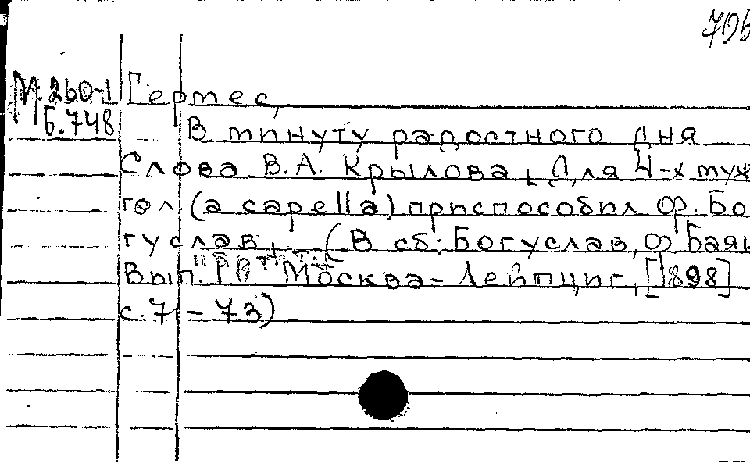 706
М.260-1 Гермес,
Б.748 В минуту радостного дня
Слова В.А. Крылова, Для 4-х муж
гол (a capella) приспособил Ф. Бо
гуслав, (В сб: Богуслав, Ф Баян
Вып. Москва-Лейпциг, [1898]
с.7-73)